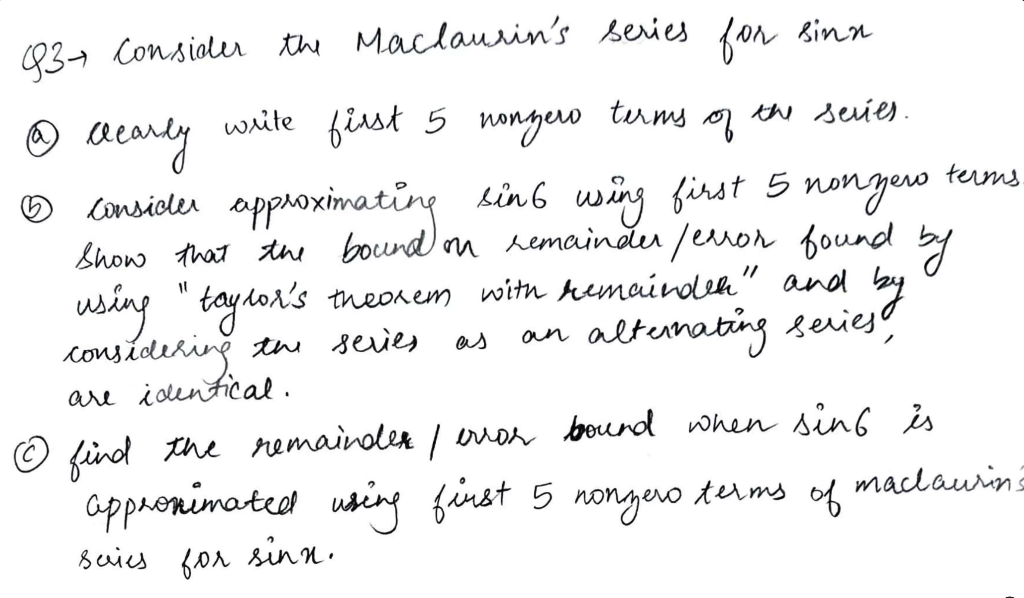 Q3→ Consider the Maclaurin's series for sinx
ⓐ clearly write first 5 nonzero terms of the series.
ⓑ consider approximating sin6 using first 5 nonzero terms.
Show that the bound on remainder/error found by
using "taylor's theorem with remainder" and by
considering the series as an alternating series,
are identical.
ⓒ find the remainder/error bound when sin6 is
approximated using first 5 nonzero terms of maclaurin's
series for sinx.